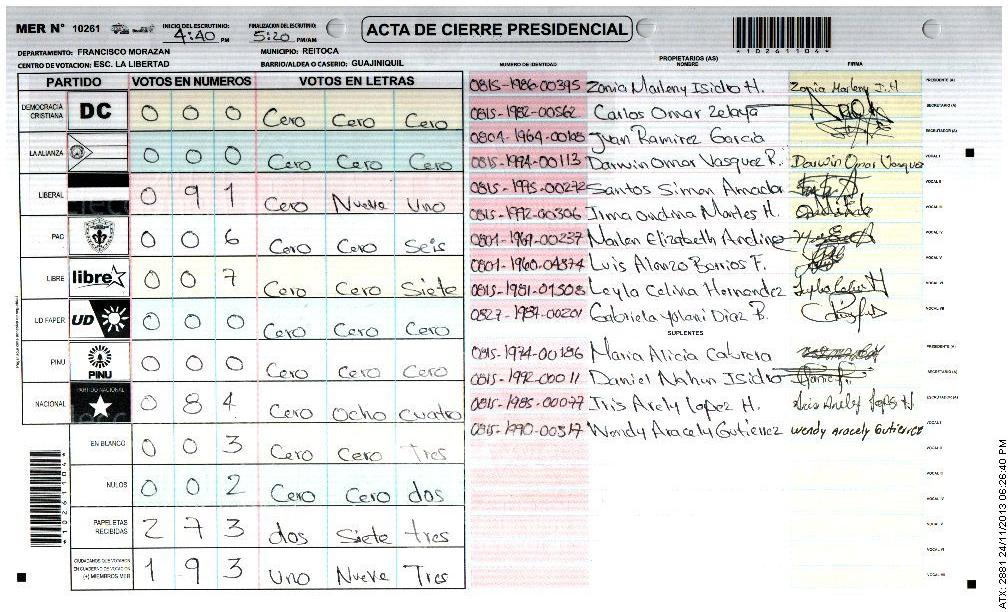 MER N° 10261 INICIO DEL ESCRUTINIO: 4:40 PM FINALIZACION DEL ESCRUTINIO: 5:20 PM/AM ACTA DE CIERRE PRESIDENCIAL *10261104*
DEPARTAMENTO: FRANCISCO MORAZAN MUNICIPIO: REITOCA
CENTRO DE VOTACION: ESC. LA LIBERTAD BARRIO/ALDEA O CASERIO: GUAJINIQUIL
PARTIDO VOTOS EN NÚMEROS VOTOS EN LETRAS
DEMOCRACIA CRISTIANA DC 0 0 0 Cero Cero Cero
LA ALIANZA 0 0 0 Cero Cero Cero
LIBERAL 0 9 1 Cero Nueve Uno
PAC 0 0 6 Cero Cero Seis
LIBRE libre 0 0 7 Cero Cero Siete
UD FAPER UD 0 0 0 Cero Cero Cero
PINU PINU 0 0 0 Cero Cero Cero
NACIONAL PARTIDO NACIONAL 0 8 4 Cero Ocho cuatro
EN BLANCO 0 0 3 Cero Cero Tres
NULOS 0 0 2 Cero Cero dos
PAPELETAS RECIBIDAS 2 7 3 dos Siete tres
CIUDADANOS QUE VOTARON EN CUADERNO DE VOTACION (+) MIEMBROS MER 1 9 3 Uno Nueve Tres
*10261104*
NUMERO DE IDENTIDAD PROPIETARIOS (AS) NOMBRE FIRMA
0815-1986-00395 Zonia Marleny Isidro H. Zonia Marleny I.H PRESIDENTE (A)
0815-1982-00562 Carlos Omar Zelaya SECRETARIO (A)
0804-1964-00165 Juan Ramirez Garcia ESCRUTADOR (A)
0815-1974-00113 Darwin Omar Vasquez R. Darwin Omar Vasquez VOCAL I
0815-1975-00272 Santos Simon Amador VOCAL II
0815-1972-00306 Irma ondina Montes H. VOCAL III
0801-1969-00237 Marlen Elizabeth Andino VOCAL IV
0801-1960-04874 Luis Alonzo Barrios F. VOCAL V
0801-1981-01508 Leyla Celina Hernandez VOCAL VI
0827-1987-00201 Gabriela Yolani Diaz B. VOCAL VII
SUPLENTES
0815-1974-00186 Maria Alicia Cabrera PRESIDENTE (A)
0815-1992-00011 Daniel Nahun Isidro SECRETARIO (A)
0815-1985-00077 Iris Arely Lopez H. Iris Arely Lopez H ESCRUTADOR (A)
0815-1990-00317 Wendy Aracely Gutierrez Wendy Aracely Gutierrez VOCAL I
VOCAL II
VOCAL III
VOCAL IV
VOCAL V
VOCAL VI
VOCAL VII
ATX: 2881 24/11/2013 06:26:40 PM